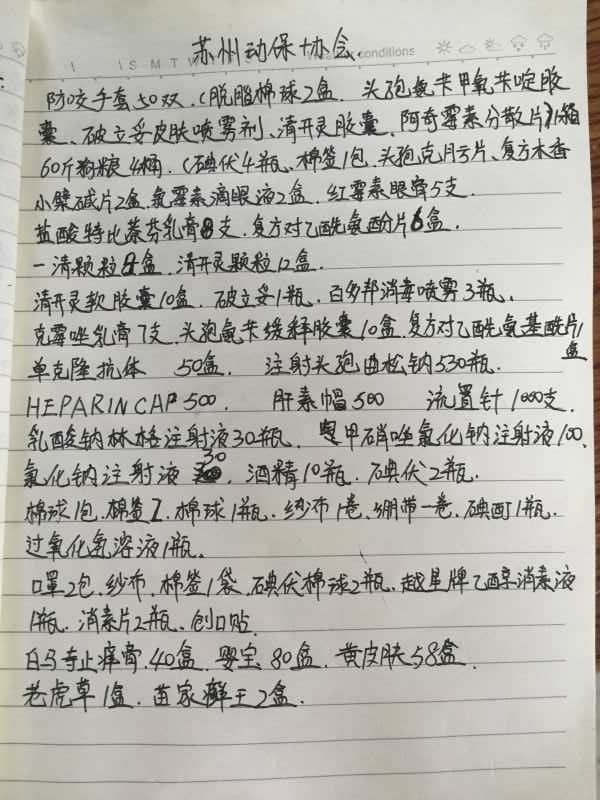 苏州动保协会.
I S M T W conditions
防咬手套50双.(脱脂棉球2盒. 头孢氨苄甲氧苄啶胶
囊. 破立妥皮肤喷雾剂. 清开灵胶囊. 阿奇霉素分散片)1箱
60斤狗粮4桶. (碘伏4瓶. 棉签1包. 头孢克月亏片. 复方木香
小檗碱片2盒. 氯霉素滴眼液2盒. 红霉素眼膏5支.
盐酸特比萘芬乳膏8支. 复方对乙酰氨酚片6盒.
一清颗粒 盒. 清开灵颗粒12盒.
清开灵软胶囊10盒. 破立妥1瓶. 百多邦消毒喷雾3瓶.
克霉唑乳膏7支. 头孢氨苄缓释胶囊10盒. 复方对乙酰氨基酰片1盒
单克隆抗体 50盒. 注射头孢曲松钠530瓶.
HEPARIN CAP 500. 肝素帽500 流置针1000支.
乳酸钠林格注射液30瓶. 甲硝唑氯化钠注射液100.
氯化钠注射液 30. 酒精10瓶. 碘伏2瓶.
棉球1包. 棉签2. 棉球1瓶. 纱布1卷. 绷带一卷. 碘酊1瓶.
过氧化氢溶液1瓶.
口罩2包. 纱布. 棉签1袋. 碘伏棉球2瓶. 越星牌乙醇消素液
1瓶. 消素片2瓶. 创口贴.
白马寺止痒膏. 40盒. 婴宝. 80盒. 黄皮肤58盒.
老虎草1盒. 苗家癣王2盒.